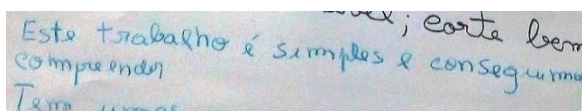 ; corte bem
Este trabalho é simples e conseguimo
compreender
Tem